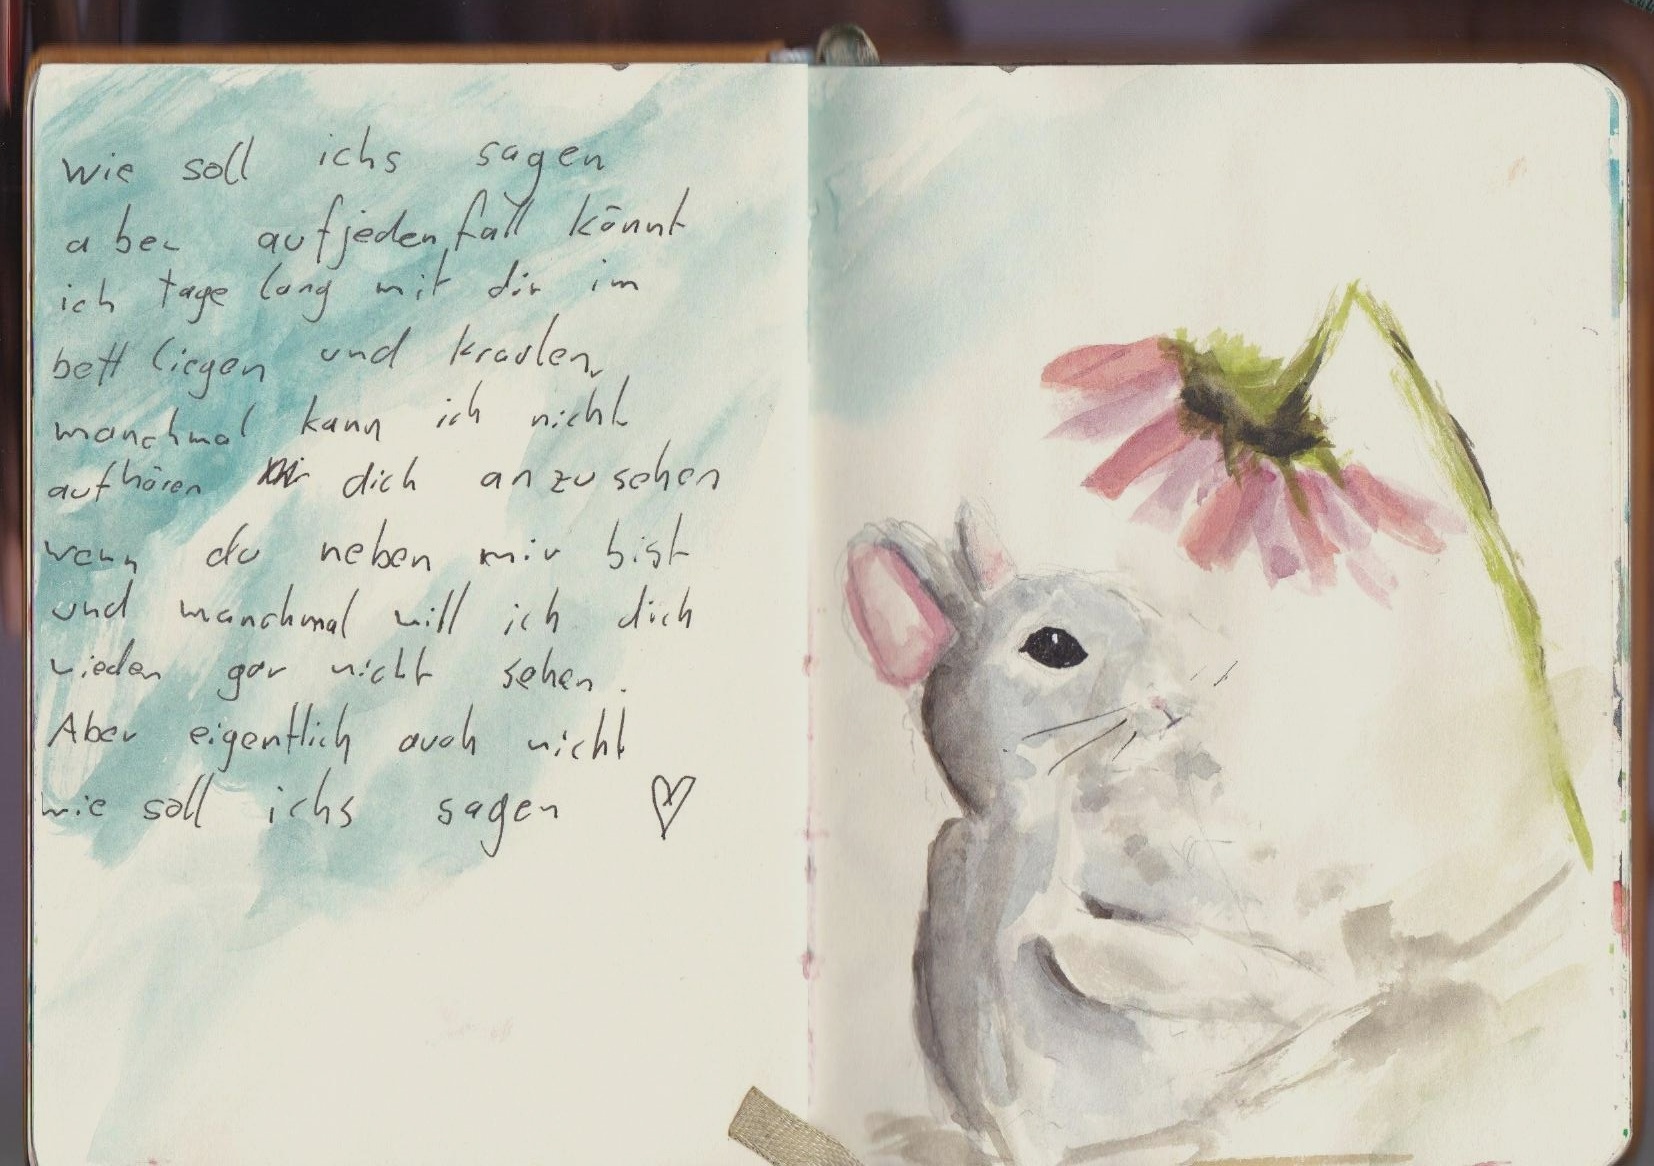 wie soll ichs sagen
aber aufjedenfall könnt
ich tage lang mit dir im
bett liegen und kraulen,
manchmal kann ich nicht
aufhören dich anzusehen
wenn du neben mir bist
und manchmal will ich dich
wieder gar nicht sehen.
Aber eigentlich auch nicht
wie soll ichs sagen